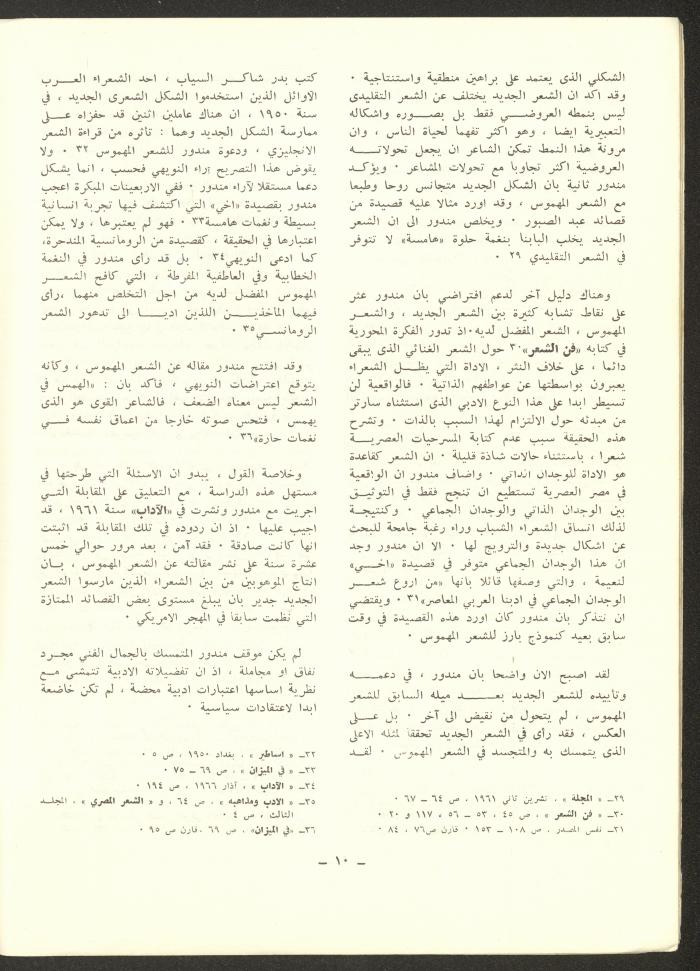 الشكلي الذى يعتمد على براهين منطقية واستنتاجية ٠
وقد اكد ان الشعر الجديد يختلف عن الشعر التقليدى
ليس بنمطه العروضـــي فقط بل بصـــوره واشكاله
التعبيرية ايضا ، وهو اكثر تفهما لحياة الناس ، وان
مرونة هذا النمط تمكن الشاعر ان يجعل تحولاتـــه
العروضية اكثر تجاوبا مع تحولات المشاعر ٠ ويؤكـد
مندور ثانية بان الشكل الجديد متجانس روحا وطبعا
مع الشعر المهموس ، وقد اورد مثالا عليه قصيدة من
قصائد عبد الصبور ٠ ويخلص مندور الى ان الشعر
الجديد يخلب البابنا بنغمة حلوة «هامسة» لا تتوفر
في الشعر التقليدي ٢٩ ٠
وهناك دليل آخر لدعم افتراضي بان مندور عثر
على نقاط تشابه كثيرة بين الشعر الجديد ، والشعـر
المهموس ، الشعر المفضل لديه٠اذ تدور الفكرة المحورية
في كتابه «فن الشعر»٣٠ حول الشعر الغنائي الذى يبقى
دائما ، على خلاف النثر ، الاداة التي يظـــل الشعراء
يعبرون بواسطتها عن عواطفهم الذاتية ٠ فالواقعية لن
تسيطر ابدا على هذا النوع الادبي الذى استثناه سارتر
من مبدئه حول الالتزام لهذا السبب بالذات ٠ وتشرح
هذه الحقيقة سبب عدم كتابة المسرحيات العصريـــة
شعرا ، باستثناء حالات شاذة قليلة ٠ ان الشعر كقاعدة
هو الاداة للوجدان الذاتي ٠ واضاف مندور ان الواقعية
في مصر العصرية تستطيع ان تنجح فقط في التوثيـق
بين الوجدان الذاتي والوجدان الجماعي ٠ وكنتيجـة
لذلك انساق الشعراء الشباب وراء رغبة جامحة للبحث
عن اشكال جديدة والترويج لها ٠ الا ان مندور وجد
ان هذا الوجدان الجماعي متوفر في قصيدة «اخــي»
لنعيمة ، والتي وصفها قائلا بانها «من اروع شعــر
الوجدان الجماعي في ادبنا العربي المعاصر»٣١ ٠ ويقتضي
ان نتذكر بان مندور كان اورد هذه القصيدة في وقت
سابق بعيد كنموذج بارز للشعر المهموس ٠
لقد اصبح الان واضحا بان مندور ، في دعمـــه
وتأييده للشعر الجديد بعـــد ميله السابق للشعر
المهموس ، لم يتحول من نقيض الى آخر ٠ بل علـى
العكس ، فقد رأى في الشعر الجديد تحققا لمثله الاعلى
الذى يتمسك به والمتجسد في الشعر المهموس ٠ لقـد
٢٩ـ « المجلة » ، تشرين ثاني ١٩٦١ ، ص ٦٤ ـ ٦٧ ٠
٣٠ـ « فن الشعر » ، ص ٤٥ ، ٥٣ ـ ٥٦ ، ١١٧ و ٢٠ ٠
٣١ـ نفس المصدر ، ص ١٠٨ ـ ١٥٣ ٠ قارن ص٧٦ ، ٨٤ ٠
كتب بدر شاكـــر السياب ، احد الشعراء العـــرب
الاوائل الذين استخدموا الشكل الشعرى الجديد ، في
سنة ١٩٥٠ ، ان هناك عاملين اثنين قد حفزاه علــى
ممارسة الشكل الجديد وهما : تاثره من قراءة الشعر
الانجليزي ، ودعوة مندور للشعر المهموس ٣٢ ٠ ولا
يقوض هذا التصريح آراء النويهي فحسب ، انما يشكل
دعما مستقلا لآراء مندور ٠ ففي الاربعينات المبكرة اعجب
مندور بقصيدة «اخي» التي اكتشف فيها تجربة انسانية
بسيطة ونغمات هامسة٣٣ ٠ فهو لم يعتبرها ، ولا يمكن
اعتبارها في الحقيقة ، كقصيدة من الرومانسية المندحرة،
كما ادعى النويهي٣٤ ٠ بل قد رأى مندور في النغمة
الخطابية وفي العاطفية المفرطة ، التي كافح الشعـــر
المهموس المفضل لديه من اجل التخلص منهما ،رأى
فيهما المأخذيـــن اللذين اديـــا الى تدهور الشعر
الرومانســي٣٥ ٠
وقد افتتح مندور مقاله عن الشعر المهموس ، وكانه
يتوقع اعتراضات النويهي ، فاكد بان : «الهمس في
الشعر ليس معناه الضعف ، فالشاعر القوى هو الذى
يهمس ، فتحس صوته خارجا من اعماق نفسه فـــي
نغمات حارة»٣٦ ٠
وخلاصة القول ، يبدو ان الاسئلة التي طرحتها في
مستهل هذه الدراسة ، مع التعليق على المقابلة التـي
اجريت مع مندور ونشرت في «الآداب» سنة ١٩٦١ ، قد
اجيب عليها ٠ اذ ان ردوده في تلك المقابلة قد اثبتت
انها كانت صادقة ٠ فقد آمن ، بعد مرور حوالي خمس
عشرة سنة على نشر مقالته عن الشعر المهموس ، بـان
انتاج الموهوبين من بين الشعراء الذين مارسوا الشعر
الجديد جدير بان يبلغ مستوى بعض القصائد الممتازة
التي نظمت سابقا في المهجر الامريكي ٠
لم يكن موقف مندور المتمسك بالجمال الفني مجـرد
نفاق او مجاملة ، اذ ان تفضيلاته الادبية تتمشى مـع
نظرية اساسها اعتبارات ادبية محضة ، لم تكن خاضعة
ابدا لاعتقادات سياسية ٠
٣٢ـ « اساطير » ، بغداد ١٩٥٠ ، ص ٥ ٠
٣٣ـ « في الميزان » ، ص ٦٩ ـ ٧٥ ٠
٣٤ـ « الآداب » ، آذار ١٩٦٦ ، ص ١٩٤ ٠
٣٥ـ « الادب ومذاهبه » ، ص ٦٤ ، و « الشعر المصري » ، المجلـد
الثالث ، ص ٤ ٠
٣٦ـ «في الميزان» ، ص ٦٩ ،قارن ص ٩٥ ٠
ـ ١٠ ـ